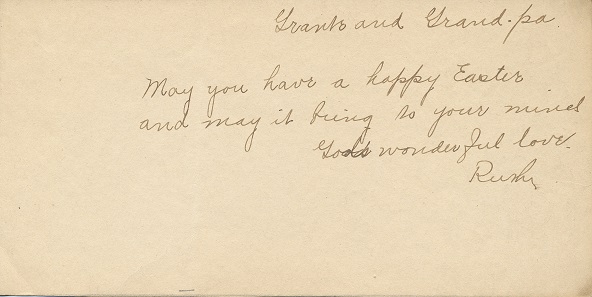 Grants and Grand-pa.
May you have a happy Easter
and may it bring to your mind
God's wonderful love.